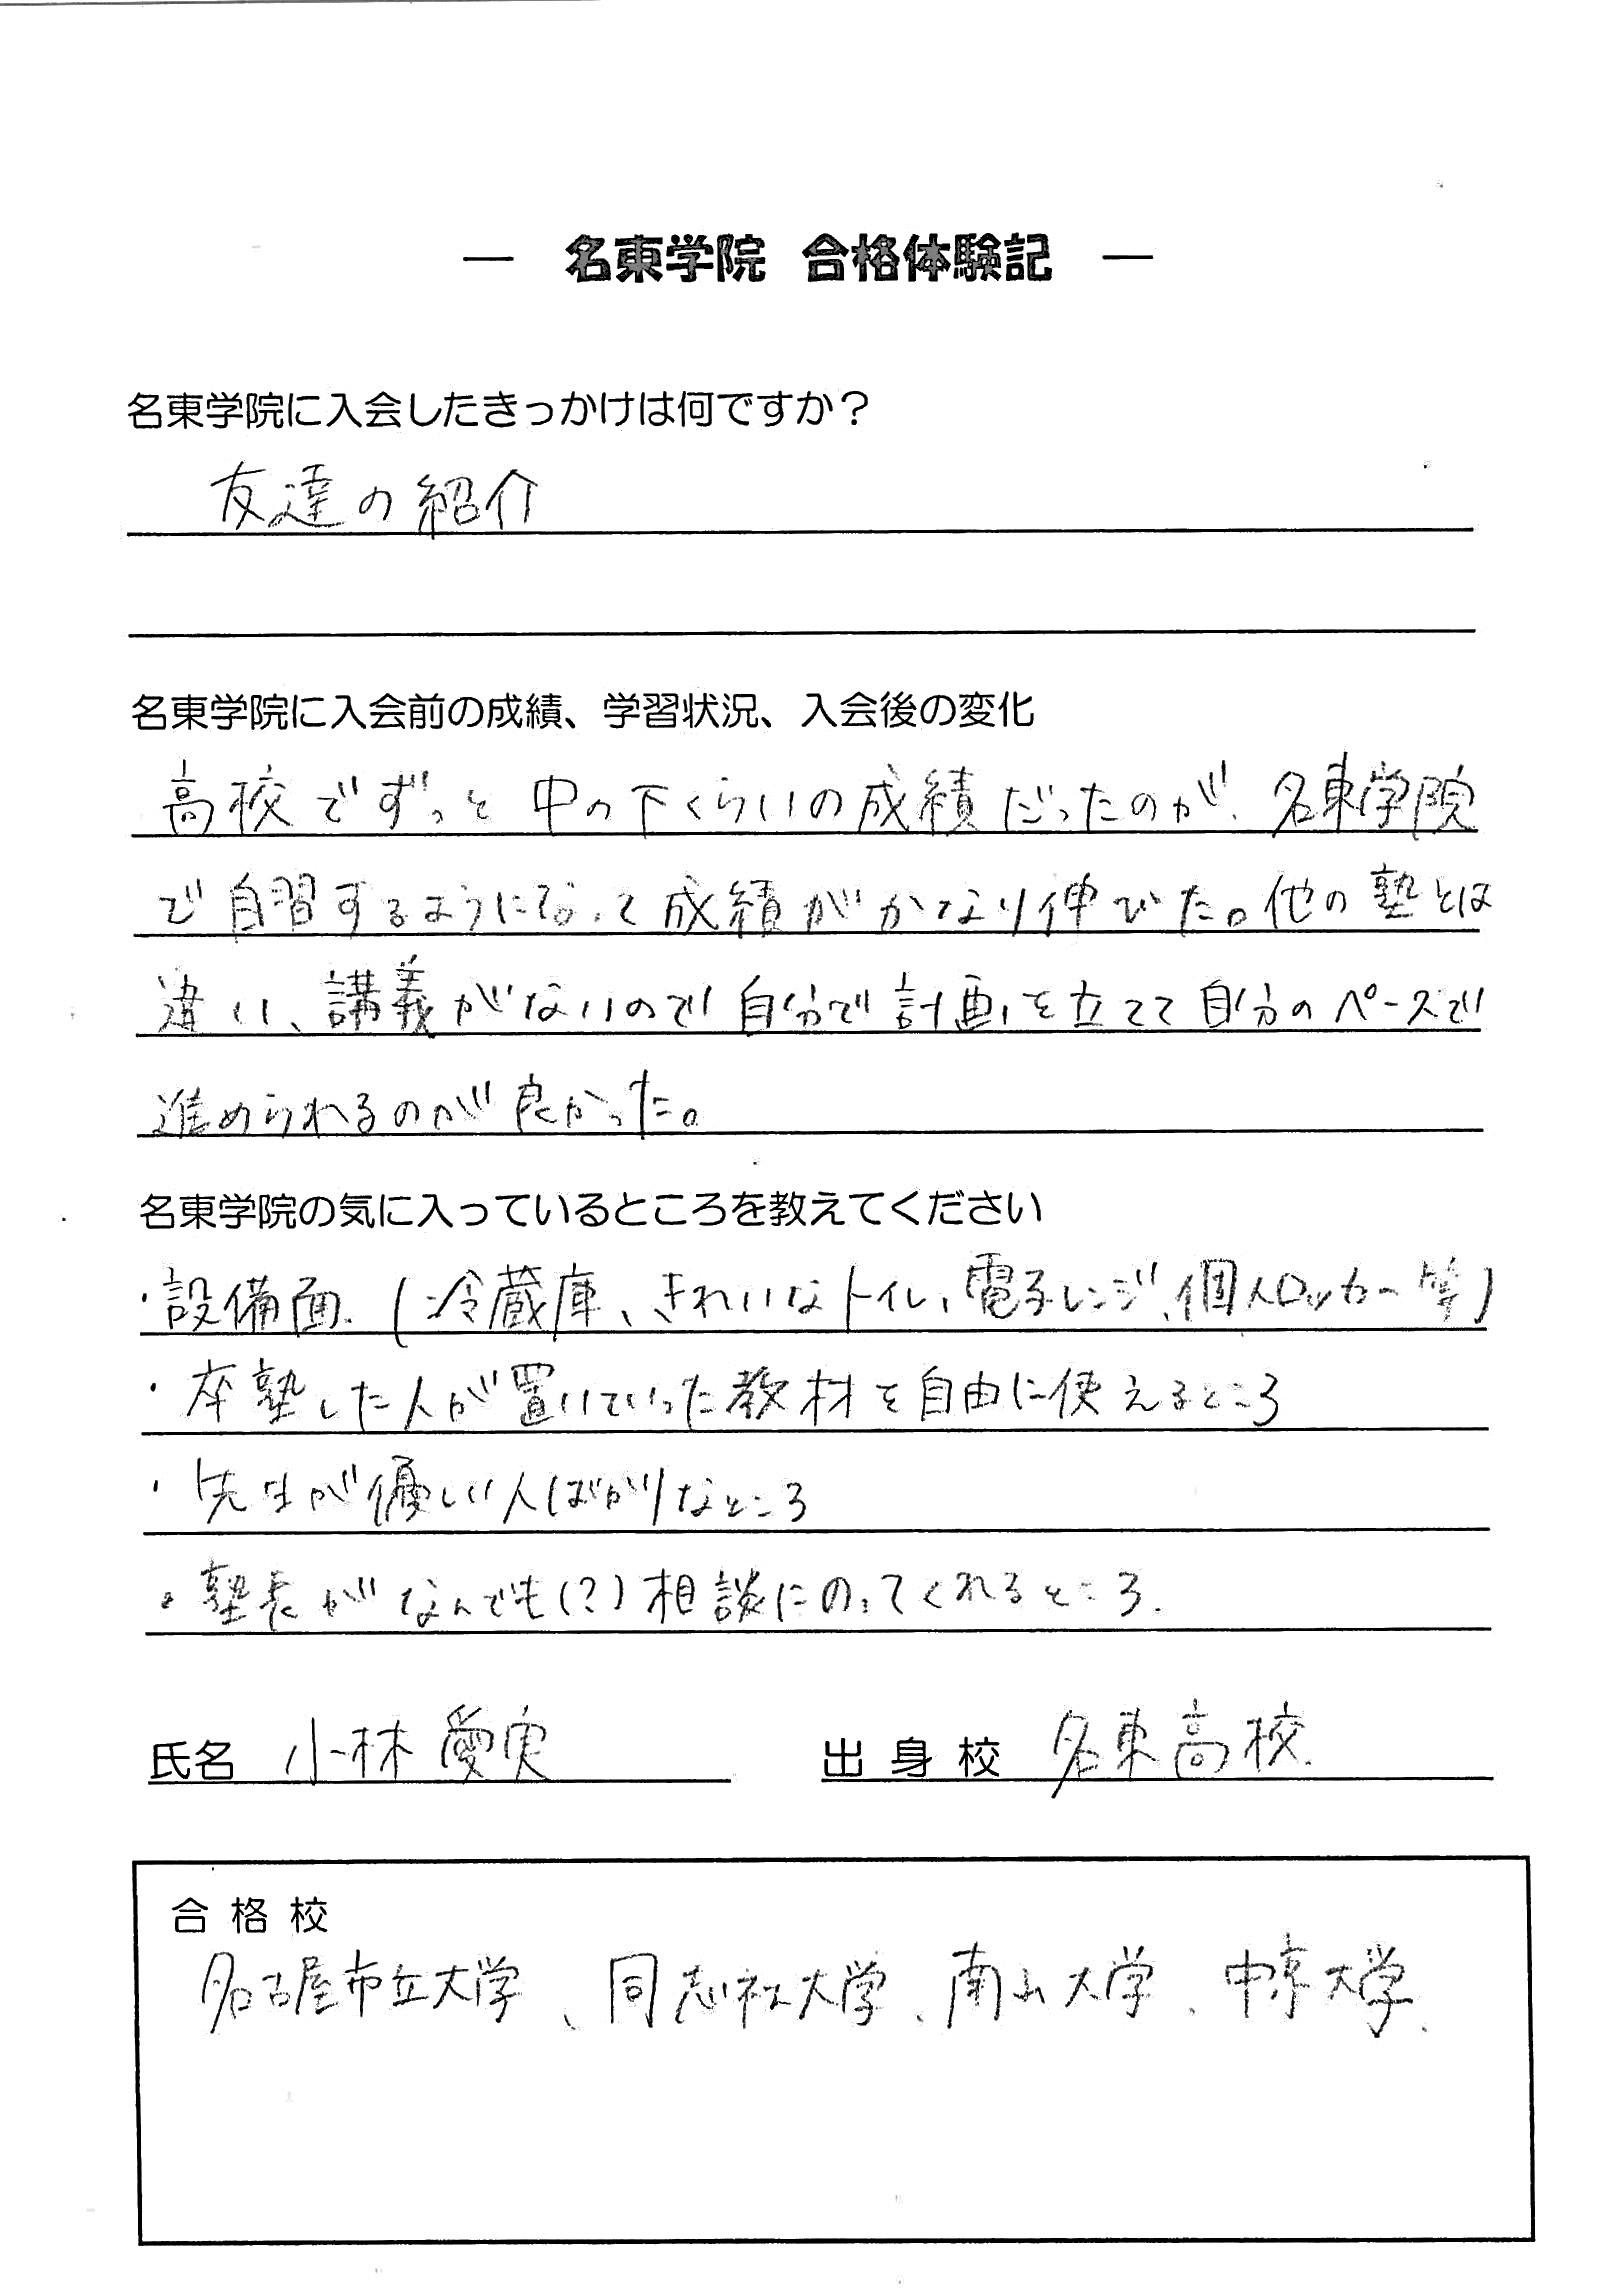 ― 名東学院 合格体験記 ―
名東学院に入会したきっかけは何ですか？
友達の紹介
名東学院に入会前の成績、学習状況、入会後の変化
高校でずっと中の下くらいの成績だったのが、名東学院
で自習するようになって成績がかなり伸びた。他の塾とは
違い、講義がないので自分で計画を立てて自分のペースで
進められるのが良かった。
名東学院の気に入っているところを教えてください
・設備面(冷蔵庫、きれいなトイレ、電子レンジ、個人ロッカー等)
・卒塾した人が置いていった教材を自由に使えるところ
・先生が優しい人ばかりなところ
・塾長がなんでも(?)相談にのってくれるところ.
氏名 小林 愛実 出身校 名東高校.
合格校
名古屋市立大学、同志社大学、南山大学、中京大学、